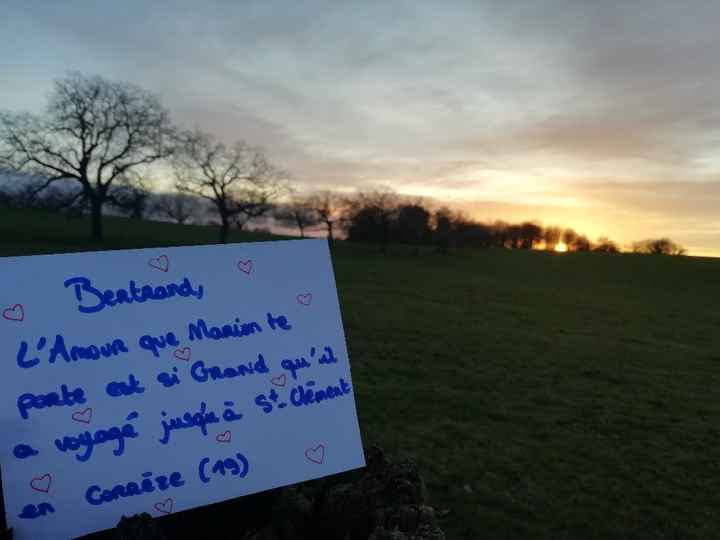 Bertrand,
L'Amour que Marion te
porte est si Grand qu'il
a voyagé jusqu'à St-Clément
en Corrèze (19)